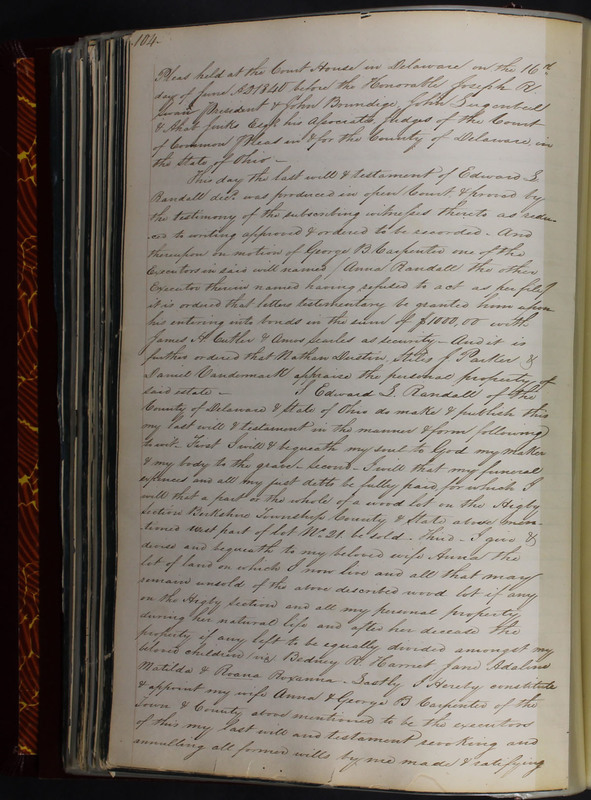 184.
Pleas held at the Court House in Delaware on the 16th
day of June AD1840 before the Honorable Joseph R.
Swan President & John Boundige, John
& Ahab Jinks Esqs. his Associate Judges of the Court
of Common Pleas in & for the County of Delaware, in
the State of Ohio –
This day the last will & testament of Edward L.
Randall decd. was produced in open Court & proved by
the testimony of the subscribing witnesses thereto as redu-
ced to writing approved & ordered to be recorded – And
thereupon on motion of George B. Carpenter one of the
Executors in said will named, Anna Randall the other
Executor therein named having refused to act as per file
it is ordered that letters testimentary be granted him upon
his entering into bonds in the sum of $1000,00 with
James A. Cutler & Amos Searles as security – And it is
further ordered that Nathan Dustin, Stiles J Parker &
Daniel Vandermark appraise the personal property of
said estate – I Edward L. Randall of the
County of Delaware & State of Ohio do make & publish this
my last will & testament in the manner & form following
towit – First I will & bequeath my soul to God my Maker
& my body to the grave – Second – I will that my funeral
expences and all my just debts be fully paid, for which I
will that a part or the whole of a wood lot on the Higby
section Berkshire Township County & State above men-
tioned west part of lot No. 21. be sold – Third – I give &
devise and bequeath to my beloved wife Anna the
lot of land on which I now live and all that may
remain unsold of the above described wood lot if any
on the Higby section and all my personal property
during her natural life and after her decease the
property if any left to be equally divided amongst my
beloved children viz Bedney R. Harriet Jane Adaline
Matilda & Roana Roxanna – Lastly I Hereby constitute
& appoint my wife Anna & George B Carpenter of the
Town & County above mentioned to be the executors
of this my last will and testament revoking and
annulling all former wills by me made & ratifying